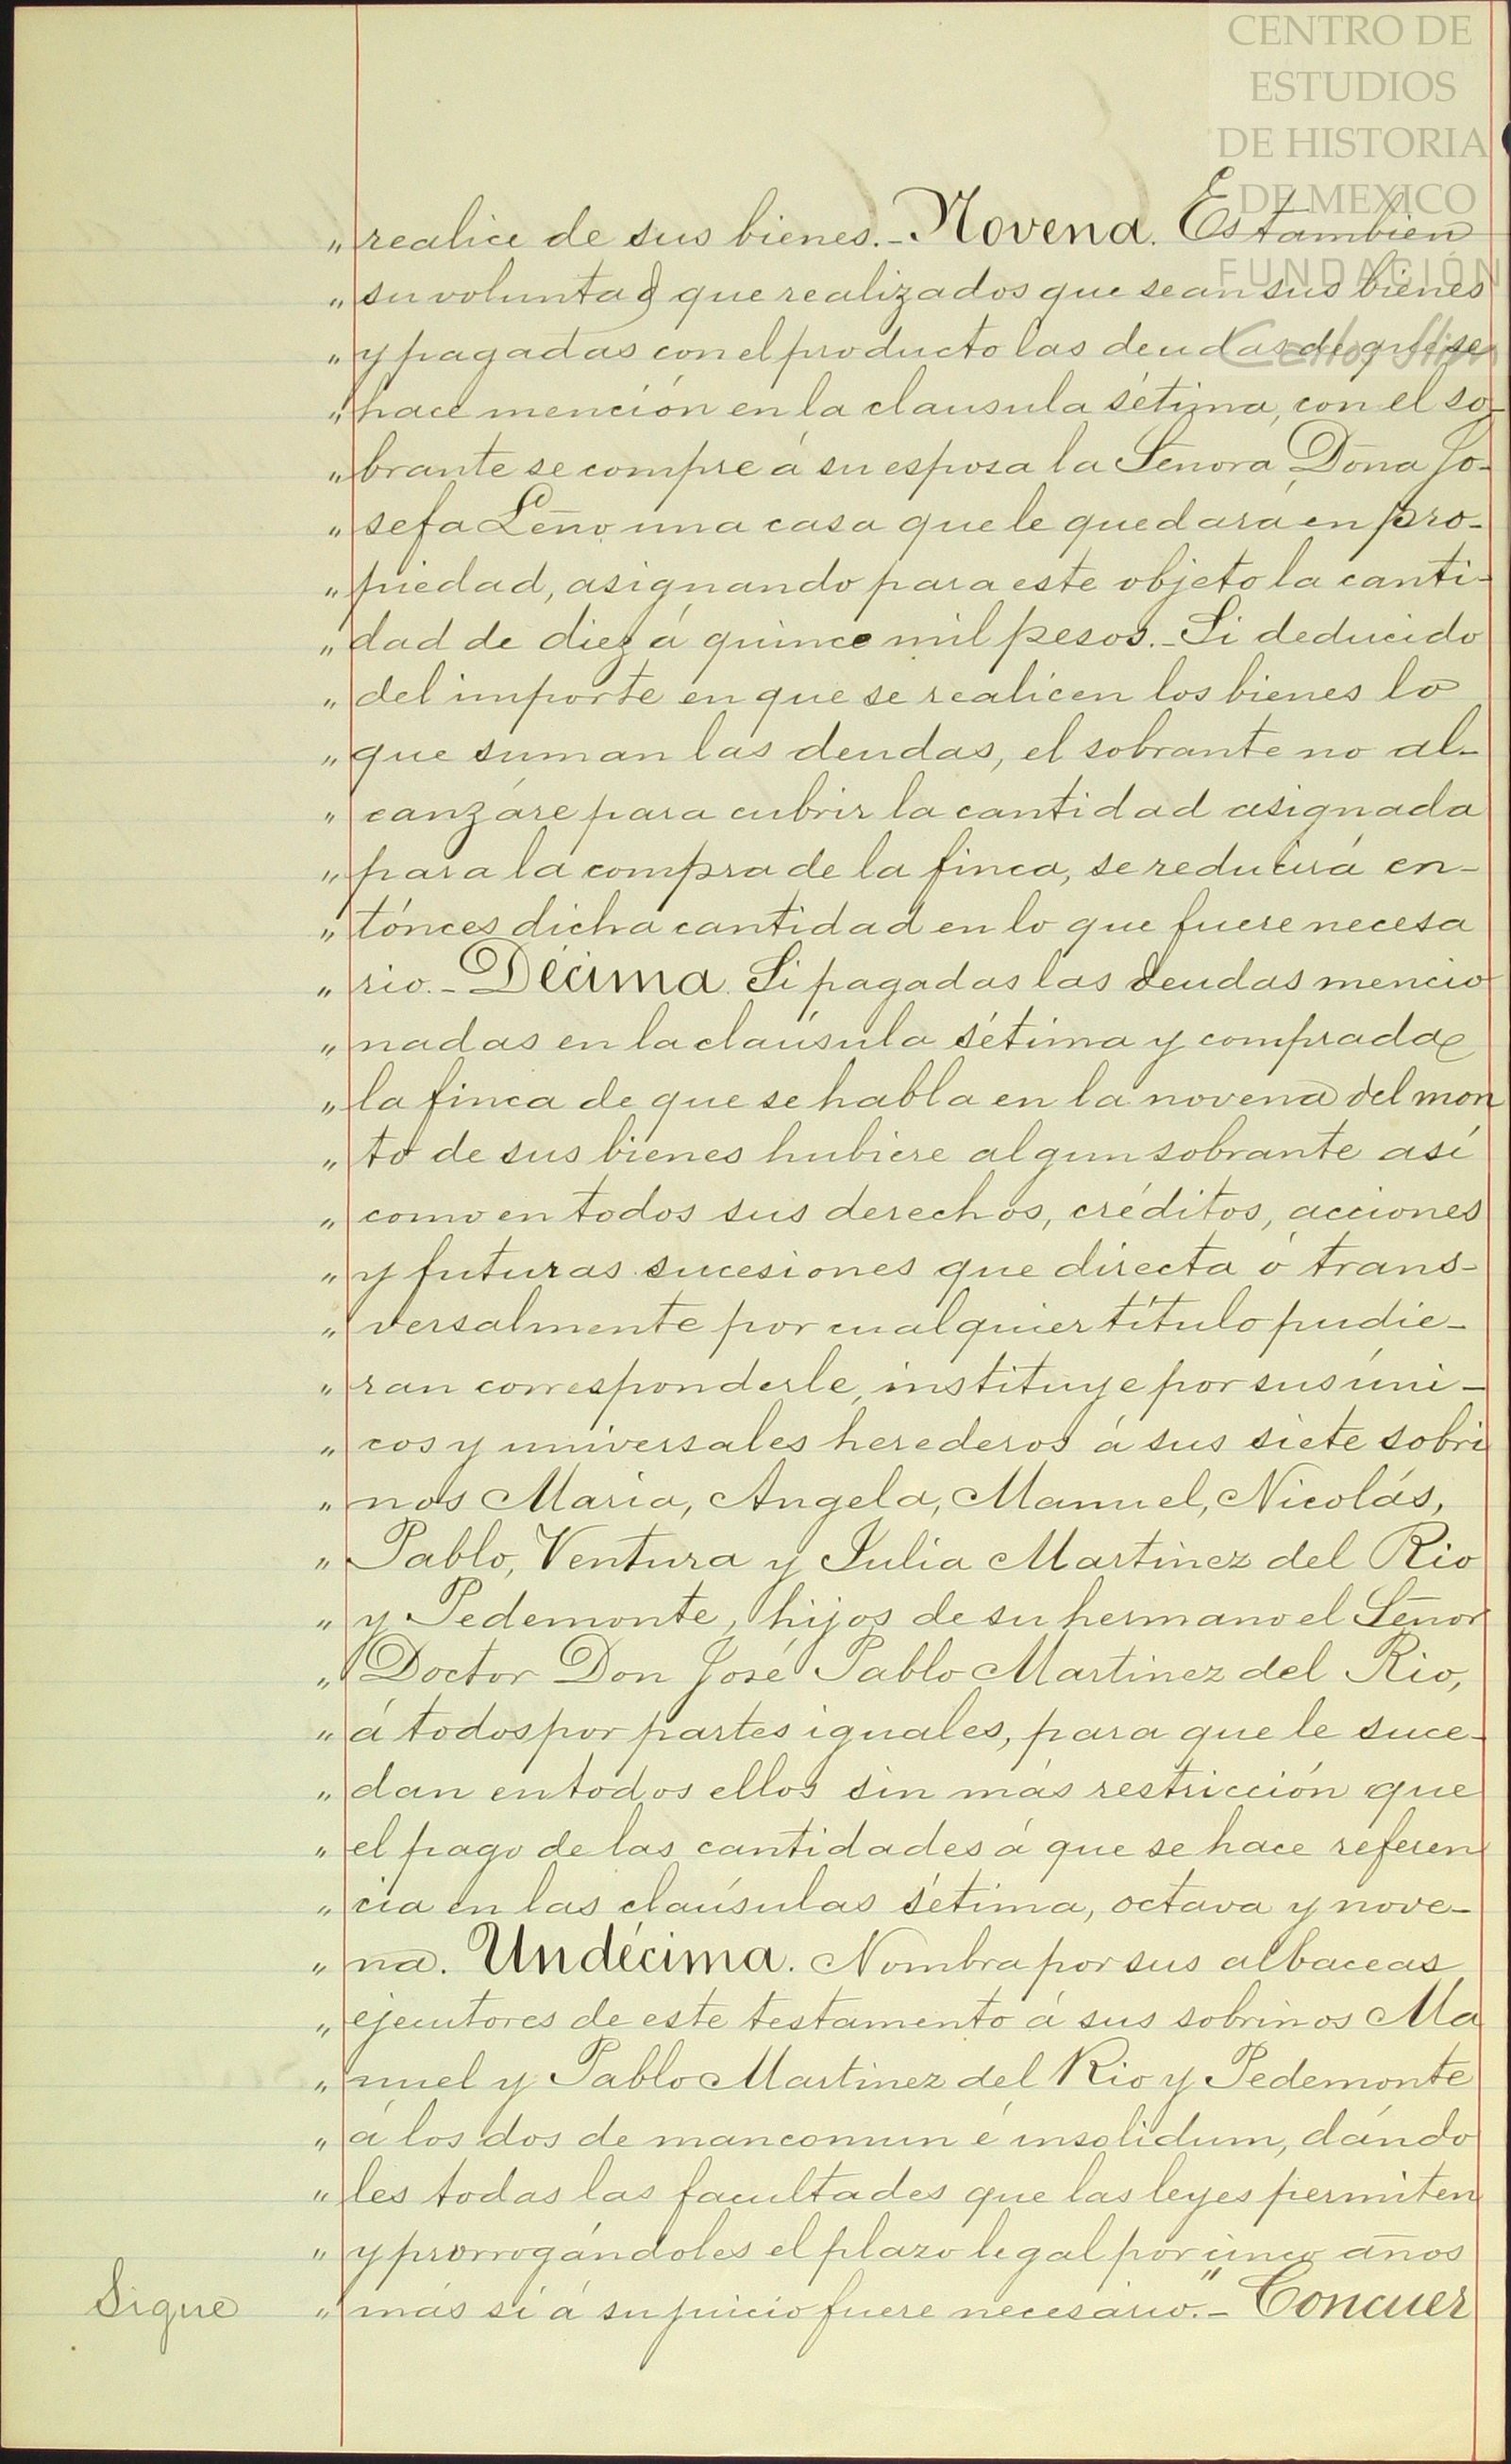 CENTRO DE
ESTUDIOS
DE HISTORIA
DE MEXICO
FUNDACIÓN
Carlos Slim
„ realice de sus bienes.- Novena. Es tambien
„ su voluntad que realizados que sean sus bienes
„ y pagadas con el producto las deudas de que se
„ hace mención en la clausula sétima, con el so-
„ brante se compre á su esposa la Señora Doña Jo-
„ sefa Leño una casa que le quedará en pro-
„ piedad, asignando para este objeto la canti-
„ dad de diez á quince mil pesos.- Si deducido
„ del importe en que se realicen los bienes lo
„ que suman las deudas, el sobrante no al-
„ canzáre para cubrir la cantidad asignada
„ para la compra de la finca, se reducirá en-
„ tónces dicha cantidad en lo que fuere necesa
„ rio.- Décima. Si pagadas las deudas mencio
„ nadas en la claúsula sétima y comprada
„ la finca de que se habla en la novena del mon
„ to de sus bienes hubiere algun sobrante así
„ como en todos sus derechos, créditos, acciones
„ y futuras sucesiones que directa ó trans-
„ versalmente por cualquier título pudie-
„ ran corresponderle, instituye por sus úni-
„ cos y universales herederos á sus siete sobri
„ nos Maria, Angela, Manuel, Nicolás,
„ Pablo, Ventura y Julia Martinez del Rio
„ y Pedemonte, hijos de su hermano el Señor
„ Doctor Don José Pablo Martinez del Rio,
„ á todos por partes iguales, para que le suce-
„ dan en todos ellos sin más restricción que
„ el pago de las cantidades á que se hace referen
„ cia en las claúsulas sétima, octava y nove-
„ na. Undécima. Nombra por sus albaceas
„ ejecutores de este testamento á sus sobrinos Ma
„ nuel y Pablo Martinez del Rio y Pedemonte
„ á los dos de mancomun é insolidum, dándo
„ les todas las facultades que las leyes permiten
„ y prorrogándoles el plazo legal por cinco años
„ más si á su juicio fuere necesario."- Concuer
Sigue